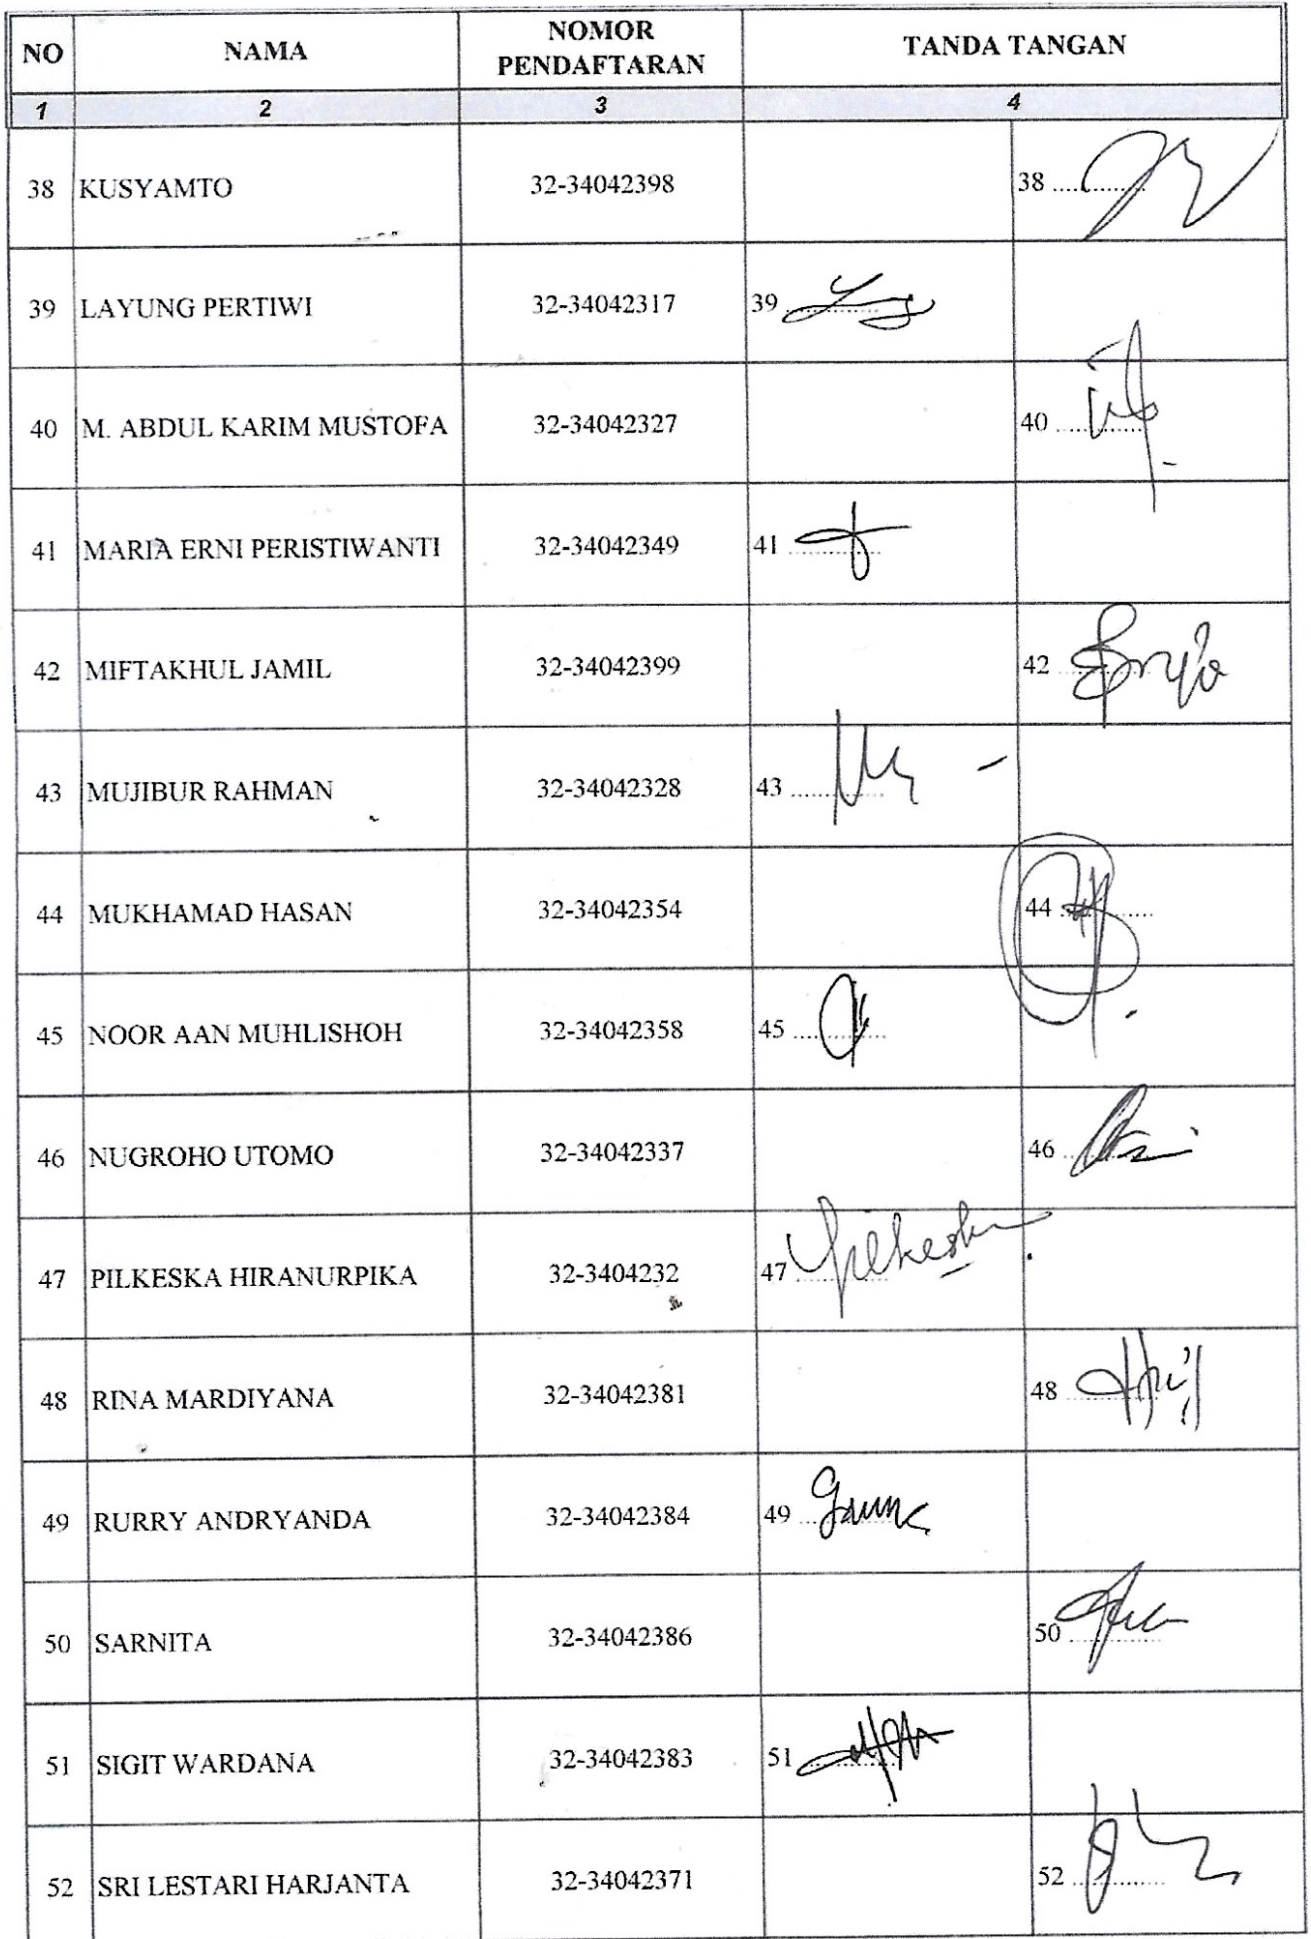 NO NAMA NOMOR PENDAFTARAN TANDA TANGAN
1 2 3 4
38 KUSYAMTO 32-34042398 38 ............
39 LAYUNG PERTIWI 32-34042317 39 ............
40 M. ABDUL KARIM MUSTOFA 32-34042327 40 ............
41 MARIA ERNI PERISTIWANTI 32-34042349 41 ............
42 MIFTAKHUL JAMIL 32-34042399 42 ............
43 MUJIBUR RAHMAN 32-34042328 43 ............
44 MUKHAMAD HASAN 32-34042354 44 ............
45 NOOR AAN MUHLISHOH 32-34042358 45 ............
46 NUGROHO UTOMO 32-34042337 46 ............
47 PILKESKA HIRANURPIKA 32-3404232 47 ............ Pilkeska
48 RINA MARDIYANA 32-34042381 48 ............
49 RURRY ANDRYANDA 32-34042384 49 ............
50 SARNITA 32-34042386 50 ............
51 SIGIT WARDANA 32-34042383 51 ............
52 SRI LESTARI HARJANTA 32-34042371 52 ............